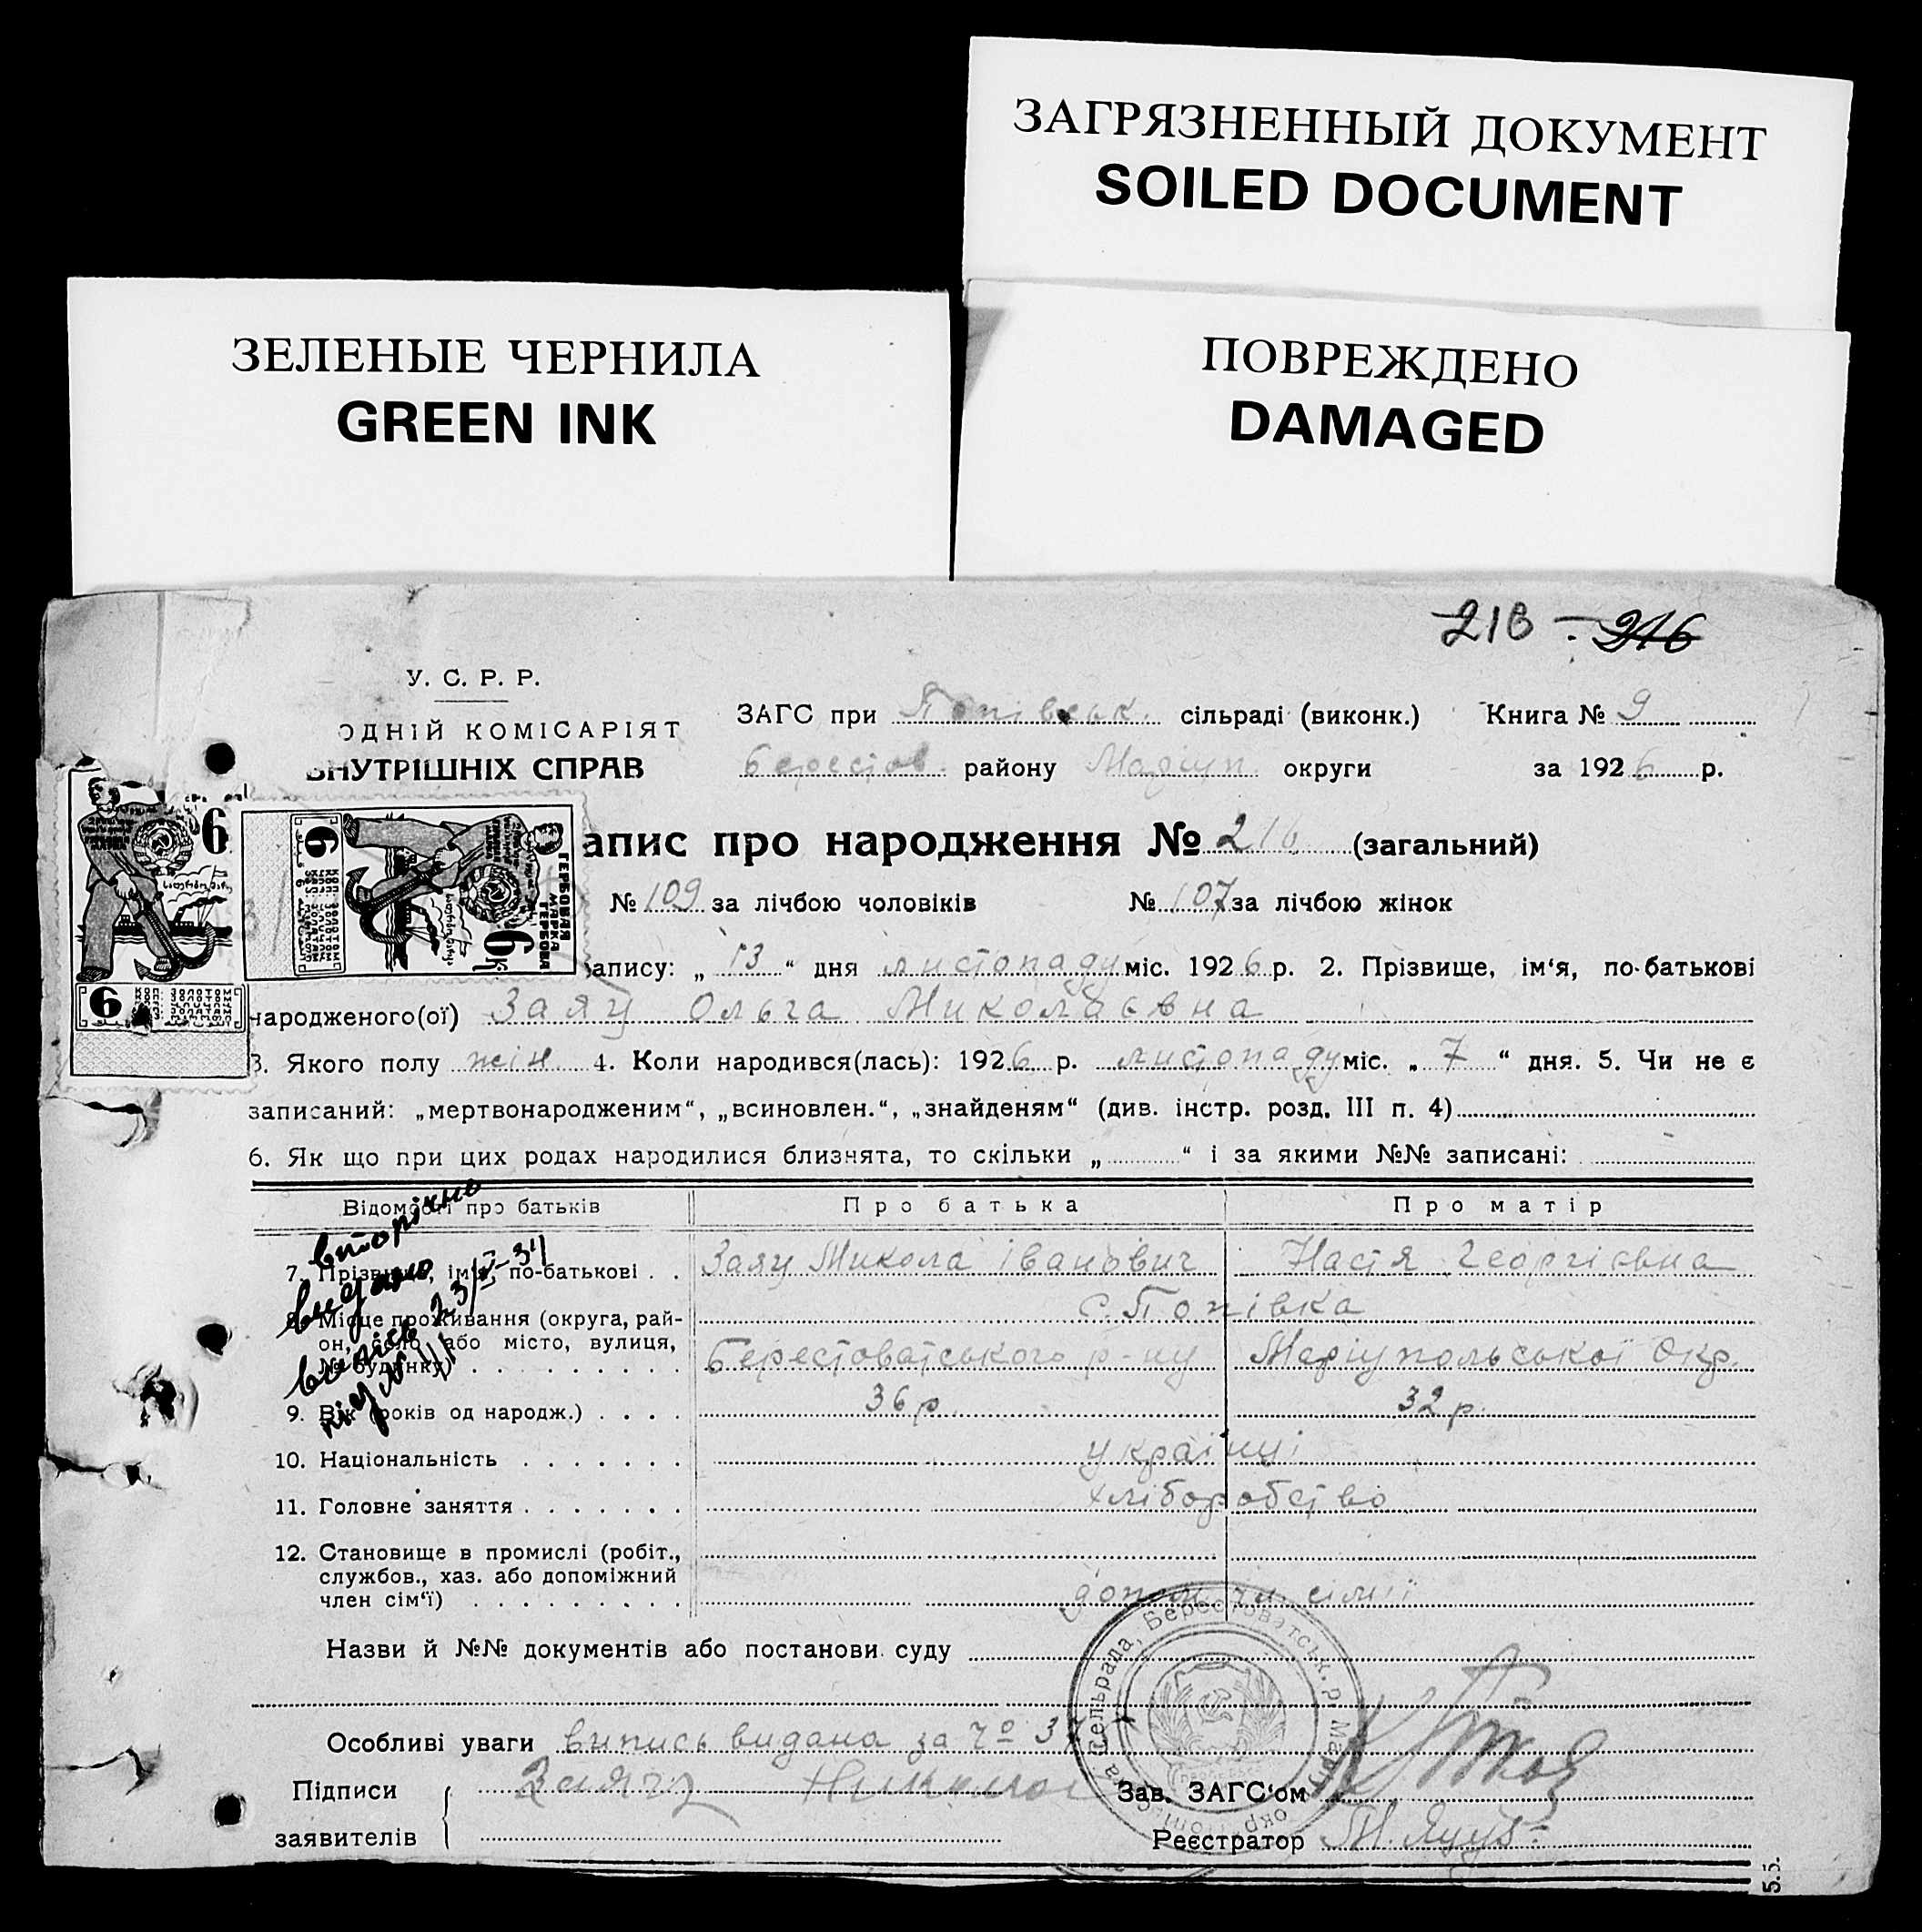 ЗАГРЯЗНЕННЫЙ ДОКУМЕНТ
SOILED DOCUMENT
ЗЕЛЕНЫЕ ЧЕРНИЛА
GREEN INK
ПОВРЕЖДЕНО
DAMAGED
216 - 216
У. С. Р. Р.
ОДНІЙ КОМІСАРІЯТ
ВНУТРІШНІХ СПРАВ
ЗАГС при Попівськ. сільраді (виконк.) Книга № 9
Берестов. району Маріуп. округи за 1926 р.
апис про народження № 216 (загальний)
№ 109 за лічбою чоловіків № 107 за лічбою жінок
6
6
ГЕРБОВАЯ
МАРКА
ГЕРБОВА
6к
6
6
запису: „ 13 “ дня листопаду міс. 1926 р. 2. Прізвище, ім‘я, по-батькові
народженого(ої) Заяц Ольга Миколаєвна
3. Якого полу жін. 4. Коли народився(лась): 1926 р. листопаду міс. „ 7 “ дня. 5. Чи не є
записаний: „мертвонародженим“, „всиновлен.“, „знайденям“ (див. інстр. розд. III п. 4)
6. Як що при цих родах народилися близнята, то скільки „ “ і за якими №№ записані:
Відомості про батьків Про батька Про матір
7. Прізвище, ім‘я, по-батькові . . Заяц Микола Іванович Настя Георгієвна
8. Місце проживання (округа, рай- с. Попівка
он, село або місто, вулиця,
№ будинку) . . . . . . . . . Берестоватського р-ну Маріупольської Окр.
9. Вік (років од народж.) . . . . 36 р. 32 р.
10. Національність . . . . . . . українці
11. Головне заняття . . . . . . . хліборобство
12. Становище в промислі (робіт.,
службов., хаз. або допоміжний
член сім‘ї) . . . . . . . . .
вторікно
видано
випісь 23/V-34
під № 111
Назви й №№ документів або постанови суду
Особливі уваги випись видана за № 37
Підписи
заявителів
Заяц Николай
Зав. ЗАГС‘ом
Реєстратор
сельрада, Берестоватськ. р. Маріу окр.
5.5.